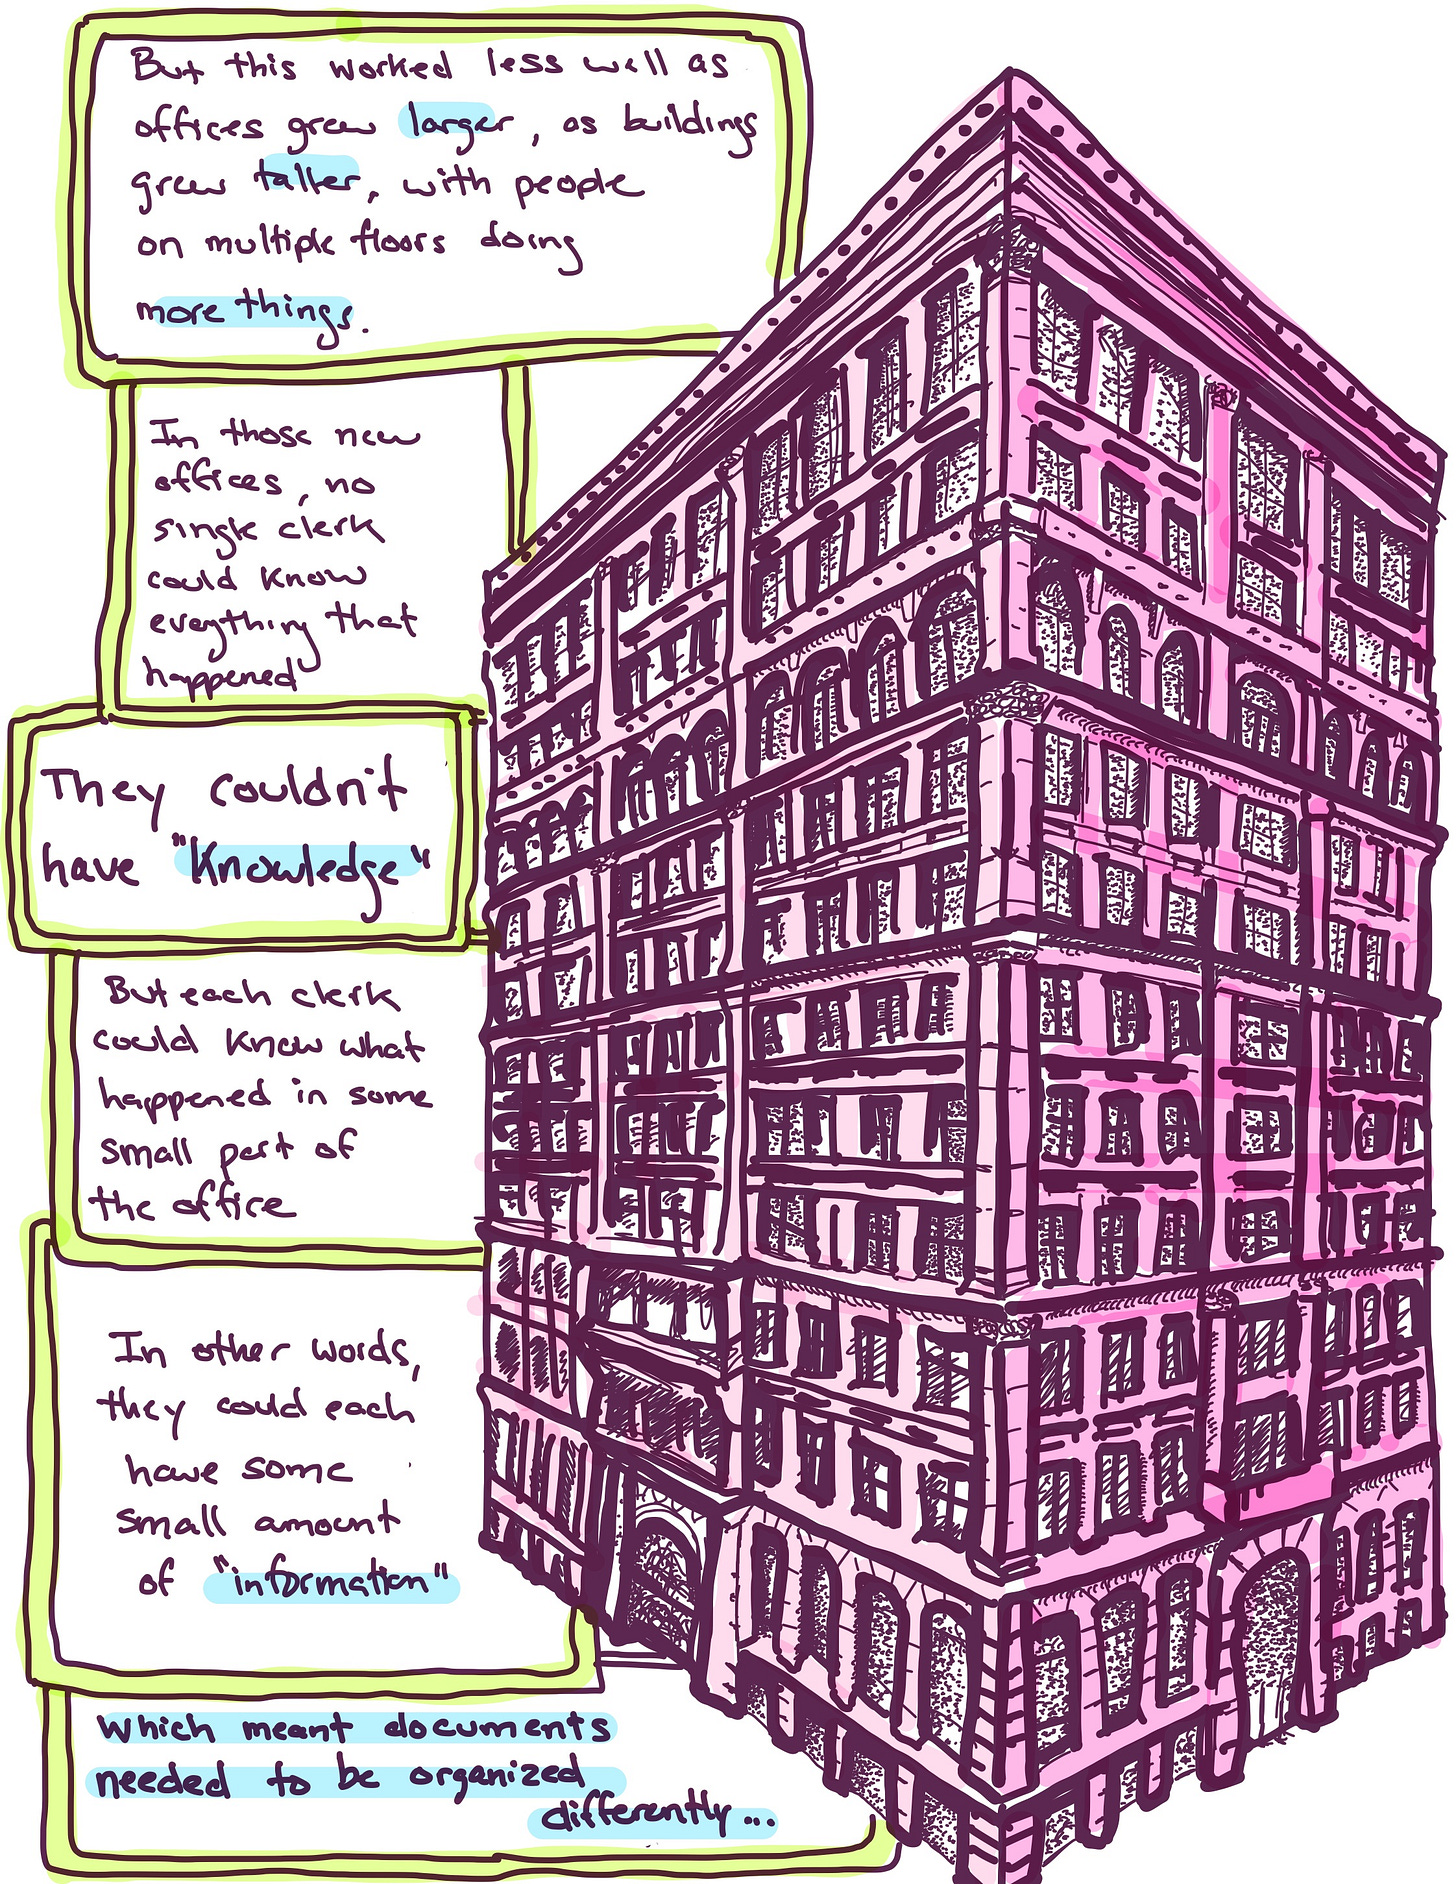 But this worked less well as
offices grew larger, as buildings
grew taller, with people
on multiple floors doing
more things.
In those new
offices, no
single clerk
could know
everything that
happened
They couldn't
have "Knowledge"
But each clerk
could know what
happened in some
small part of
the office
In other words,
they could each
have some
small amount
of "information"
which meant documents
needed to be organized
differently...